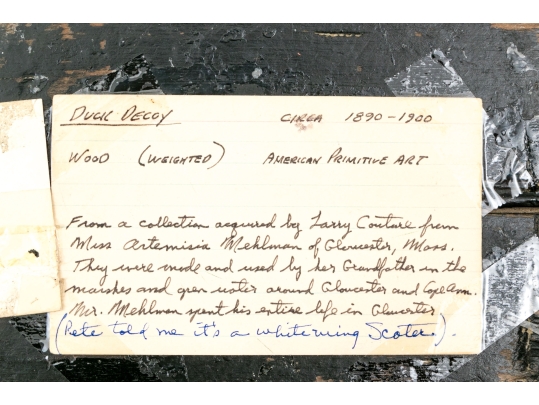 DUCK DECOY CIRCA 1890-1900
WOOD (WEIGHTED) AMERICAN PRIMITIVE ART
From a collection acquired by Larry Couture from
Miss Artemisia Mehlman of Gloucester, Mass.
They were made and used by her Grandfather in the
marshes and open water around Gloucester and Cape Ann.
Mr. Mehlman spent his entire life in Gloucester
(Pete told me it's a whitewing Scoter).